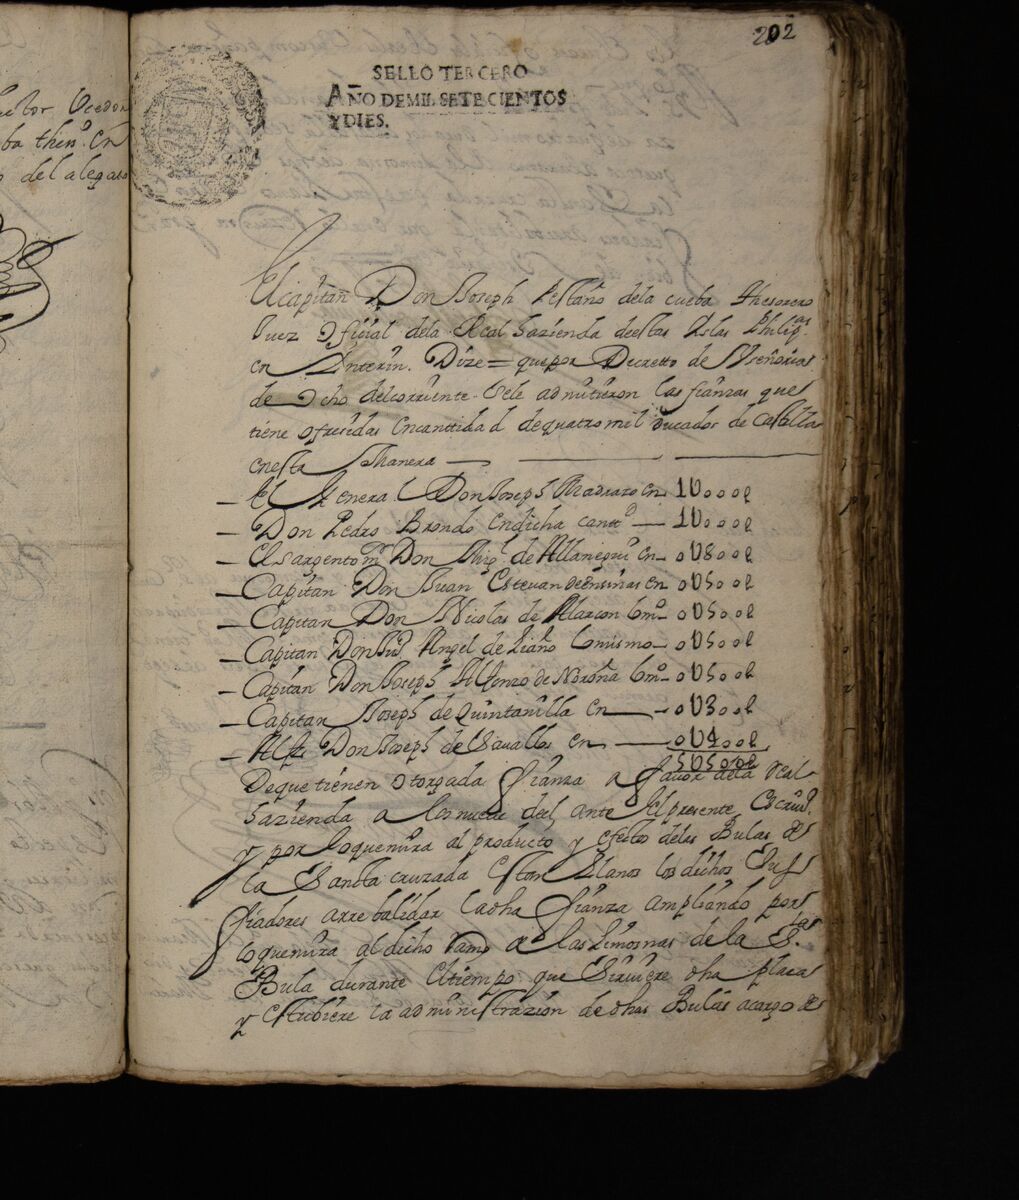 202
SELLO TERCERO
AÑO DE MIL SETECIENTOS
Y DIES.
El capitan Don Joseph Pestaño dela cueba Thesorero
Juez Oficial dela Real hazienda deestas Islas Philip.as
en Ynterin. Dize = que por Decretto de Vseñorias
de Ocho del corriente. Sele admitieron las fianzas que
tiene ofresidas en canttidad de quatro mil ducados de Castilla
en esta Manera
— Al General Don Joseph Madrazo en — 1U000l
— Don Pedro Brondo en dicha cantt.d — 1U000l
— El sargento m.or Don Mig.l de Allanegui en — 0U800l
— Capitan Don Juan Estevan de ensinas en — 0U500l
— Capitan Don Nicolas de Alarcon lo m.o — 0U500l
— Capitan Don Ju.o Angel de Liaño lo mismo — 0U500l
— Capitan Don Joseph Alfonzo de Noroña lo m.o — 0U500l
— Capitan Joseph de Quintanilla en — 0U300l
— Alf.s Don Joseph de Savallos en — 0U400l
5U500l
De que tienen Otorgada fianza a favor dela Real
hazienda a los nueve del ante el presente Escriv.o
y por lo que mira al producto y efecto delas Bulas de
la Santta cruzada estan llanos los dichos Sus
fiadores a rrebalidar la dha fianza ampliando por
lo que mira al dicho Ramo de las limosnas de la S.ta
Bula durante el tiempo que Sirviere dha plaza
y estubiere la administrazion de dhas Bulas a cargo de